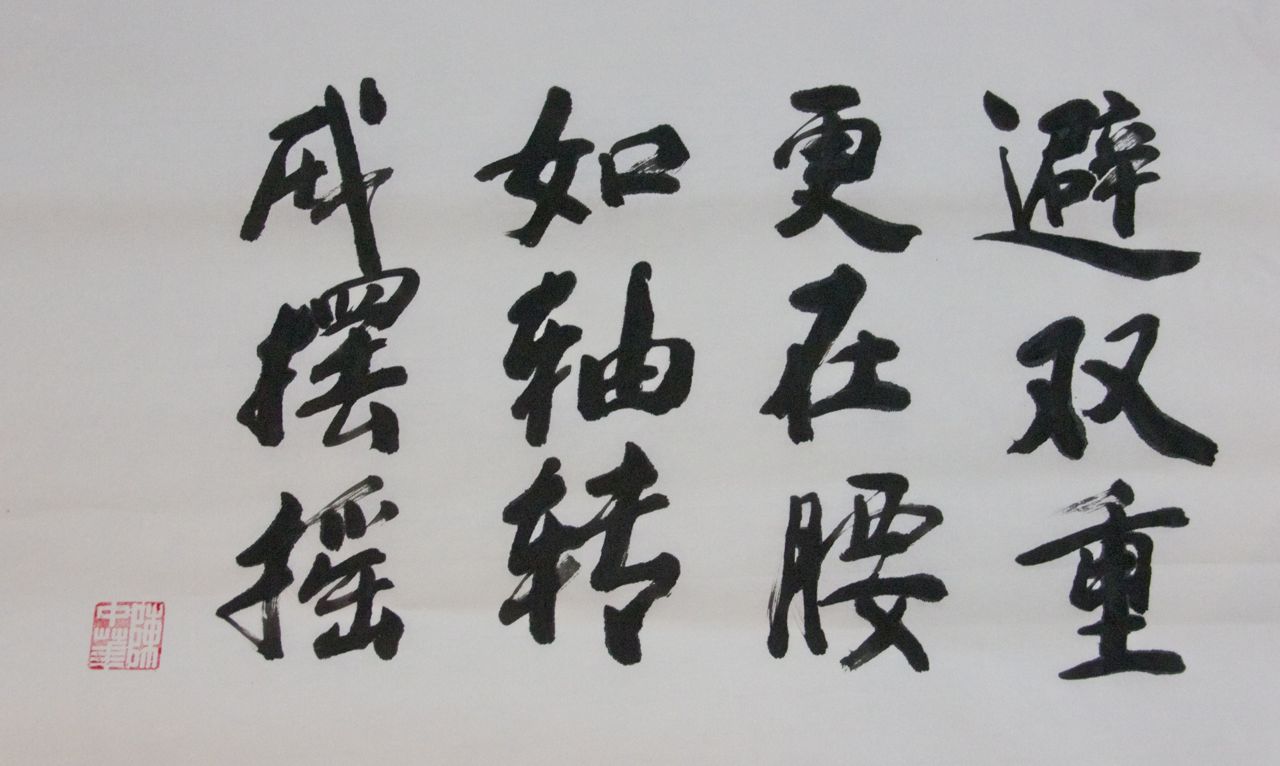 避双重
更在腰
如轴转
戒摆摇